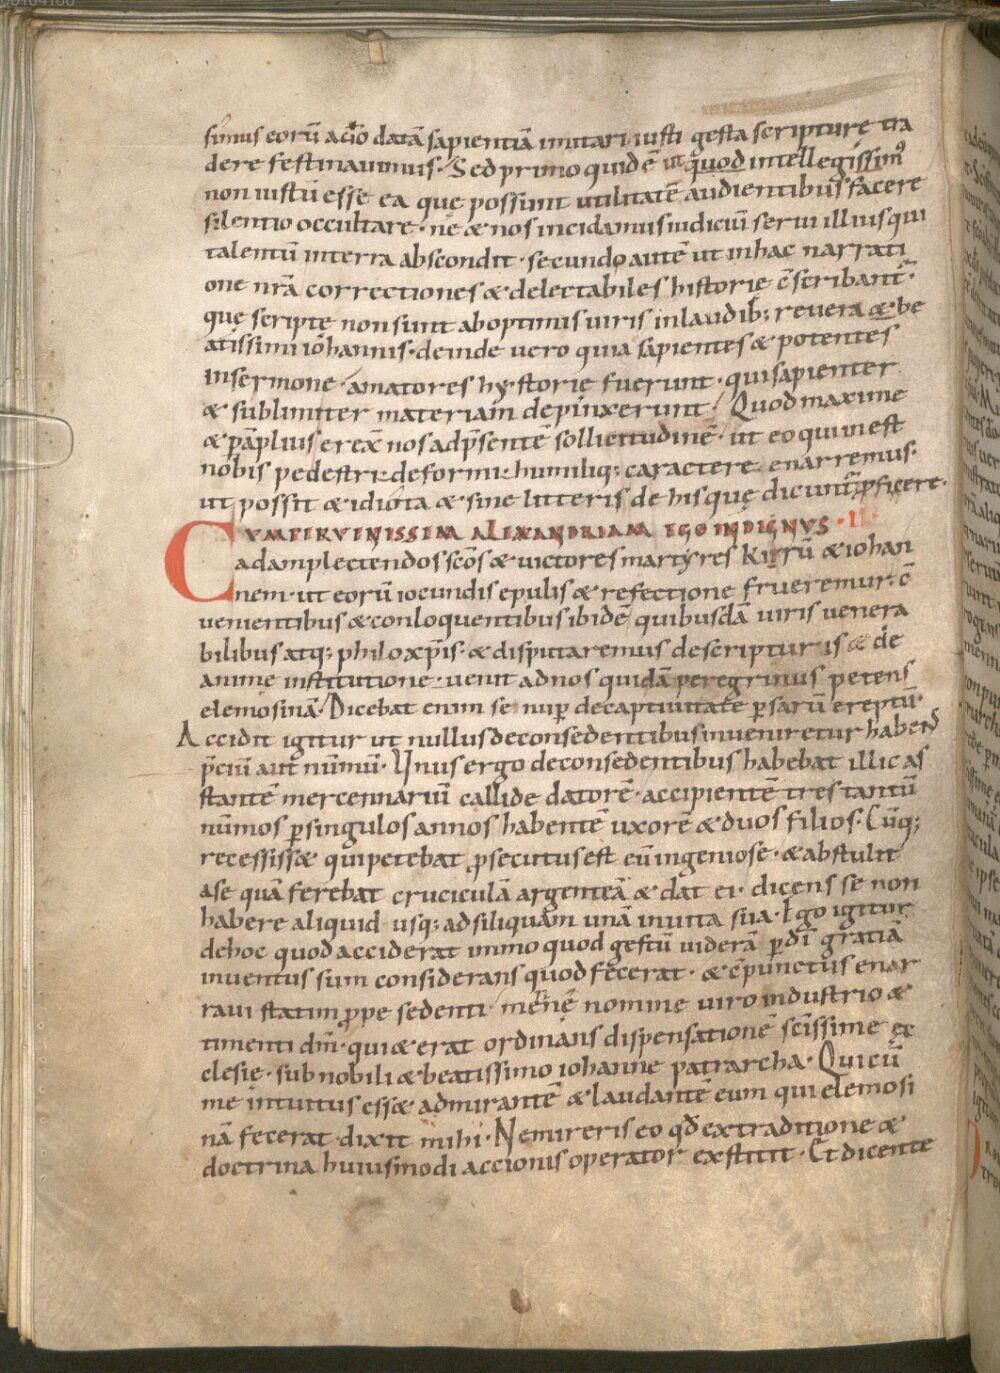 simus eorū a dō datā sapientiā imitari iusti gesta scripturę tra
dere festinauimus. Sed primo quidē ut quod intellegissim᾿
non iustū esse ea que possunt utilitatē audientibus facere
silentio occultare. ne & nos incidamus iudiciū serui illius qui
talentū in terra abscondit. secundo autē ut in hac narrati
one nr̄a correctiones & delectabiles historię c̄scribant᷑.
quę scriptę non sunt ab optimis uiris in laudib; reuera & be
atissimi iohannis. deinde uero quia sapientes & potentes
in sermone amatores hystorię fuerunt. qui sapienter
& sublimiter materiam depinxerunt. Quod maxime
& p̄āplius erex& nos ad p̄sentē sollicitudinē. ut eo qui inest
nobis pedestri deformi humiliq; caractere enarremus.
ut possit & idiota & sine litteris de his quę dicunt᷑ ꝓficere.
CVM PERVENISSEM ALEXANDRIAM EGO INDIGNUS . I
ad amplectendos sc̄os & uictores martyres Kirrū & iohan
nem. ut eorū iocundis epulis & refectione frueremur. c̄
uenientibus & conloquentibus ibidē quibusdā uiris venera
bilibus atq; philoxp̄is. & disputaremus de scripturis & de
anime institutione. uenit ad nos quidā peregrinus petens
elemosinā. Dicebat enim se nuꝑ de captiuitate ꝑsarū ereptū.
Accidit igitur ut nullus de consedentibus inueniretur habens
p̄ciū aut nūmū. Unus ergo de consedentibus habebat illic as
stantē mercennariū callide datorē. accipientē tres tantū
nūmos ꝑ singulos annos habentē uxorē & duos filios. Cūq;
recessiss& qui petebat ꝓsecutus est eū ingeniose. & abstulit
a se quā ferebat cruciculā argenteā & dat ei. dicens se non
habere aliquid usq; ad siliquam unā in uita sua. Ego igitur
de hoc quod acciderat immo quod gestū uiderā ꝑ dī gratiā
inuentus sum considerans quod fecerat. & c̄punctus enar
raui statim ꝓpe sedenti menē nomine uiro industrio &
timenti dm̄. qui & erat ordinans dispensationē scīssime ęx
clesię. sub nobili & beatissimo iohanne patrarcha. Qui cū
me intuitus ess& admirantē & laudantē eum qui elemosi
nā fecerat dixit mihi. Ne mireris eo qd̄ ex traditione &
doctrina huiusmodi accionis operator exstitit. Et dicente